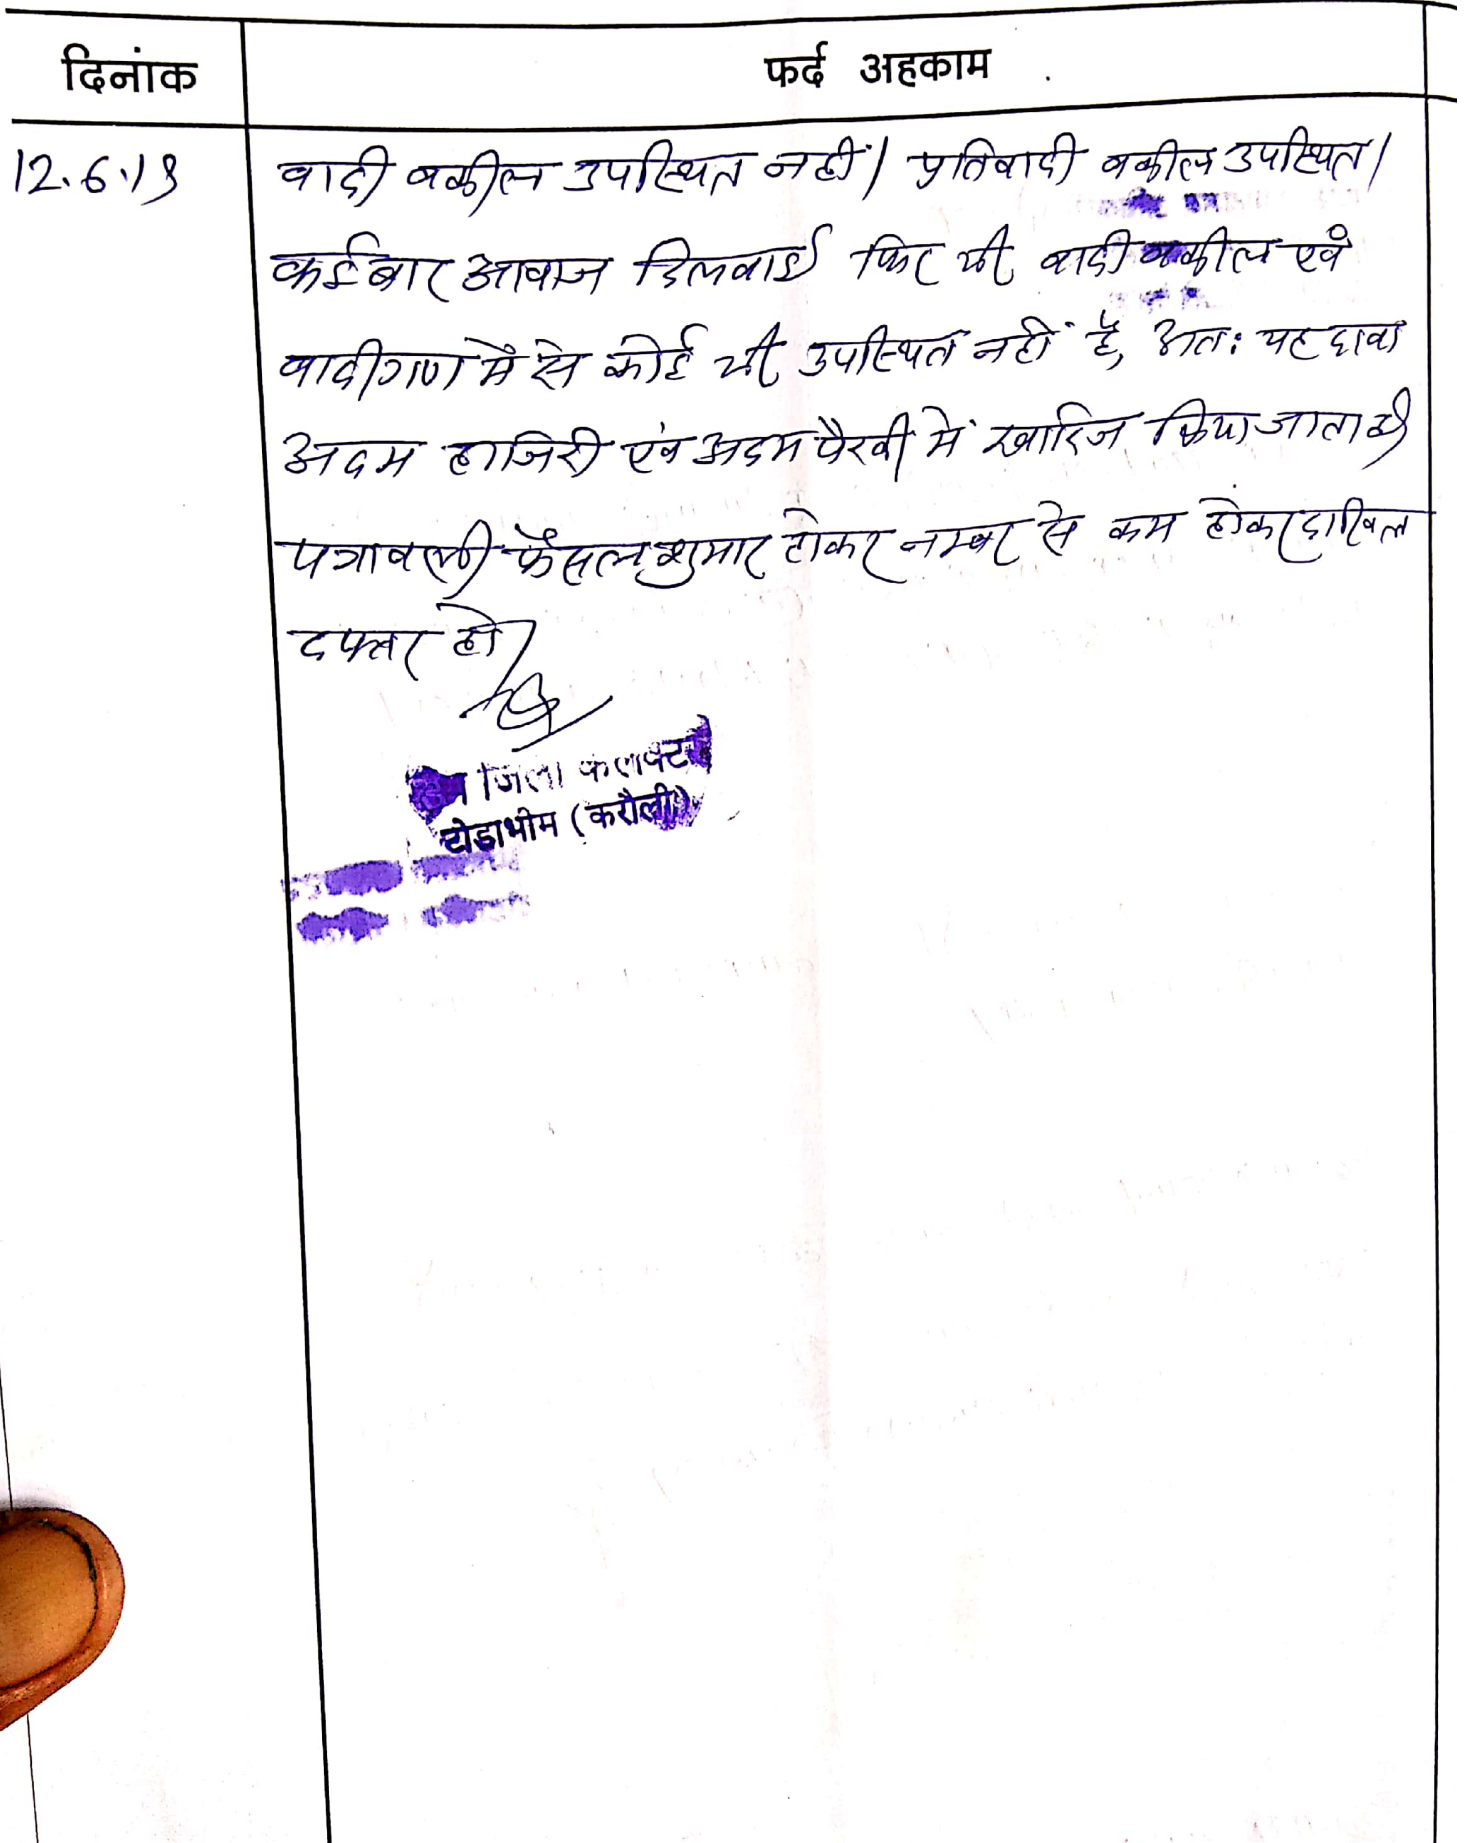 दिनांक
फर्द अहकाम
12.6.19
वादी वकील उपस्थित नहीं। प्रतिवादी वकील उपस्थित।
कई बार आवाज दिलवाई फिर भी वादी वकील एवं
वादीगण में से कोई भी उपस्थित नहीं है, अतः यह दावा
अदम हाजिरी एंव अदम पैरवी में खारिज किया जाता है।
पत्रावली फैसल शुमार होकर नम्बर से कम होकर दाखिल
दफ्तर हो।
जिला कलक्टर
टोडाभीम (करौली)